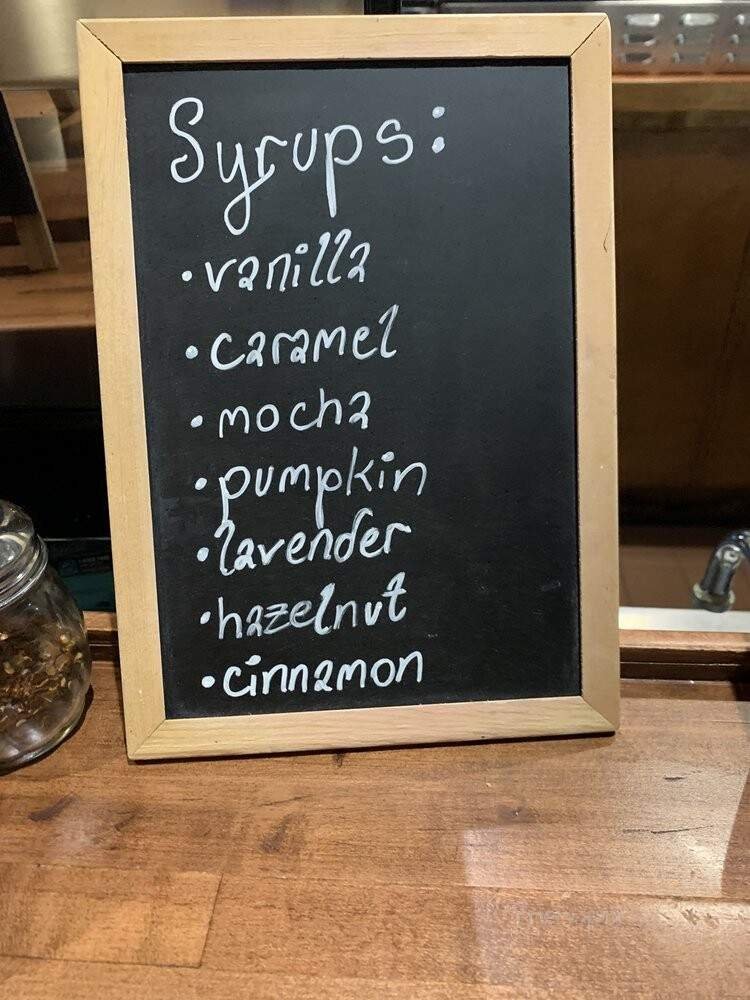 Syrups:
•vanilla
•caramel
•mocha
•pumpkin
•lavender
•hazelnut
•cinnamon